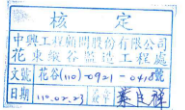 核定
中興工程顧問股份有限公司
花東縱谷監造工程處
文號 花谷(110)-0921-0418號
日期 110.02.23 簽章